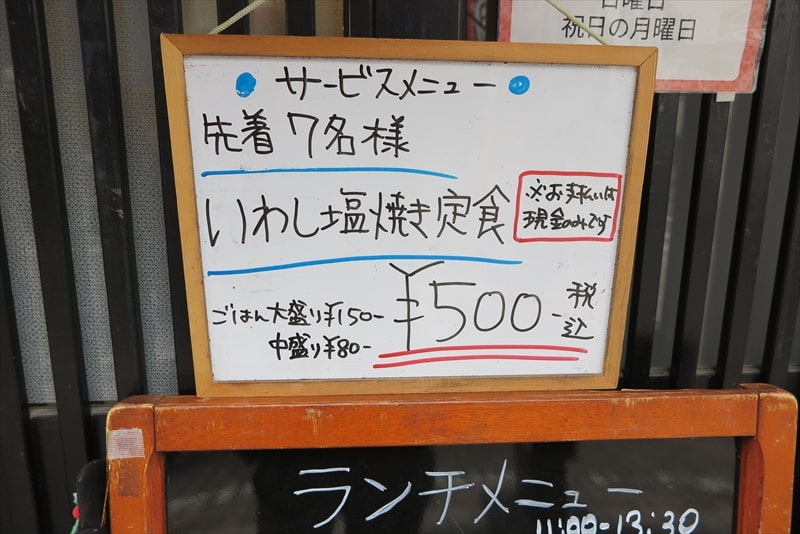 日曜日
祝日の月曜日
サービスメニュー
先着7名様
いわし塩焼き定食
※お支払いは
現金のみです
ごはん大盛り¥150-
中盛り¥80-
¥500-
税込
ランチメニュー
11:00-13:30